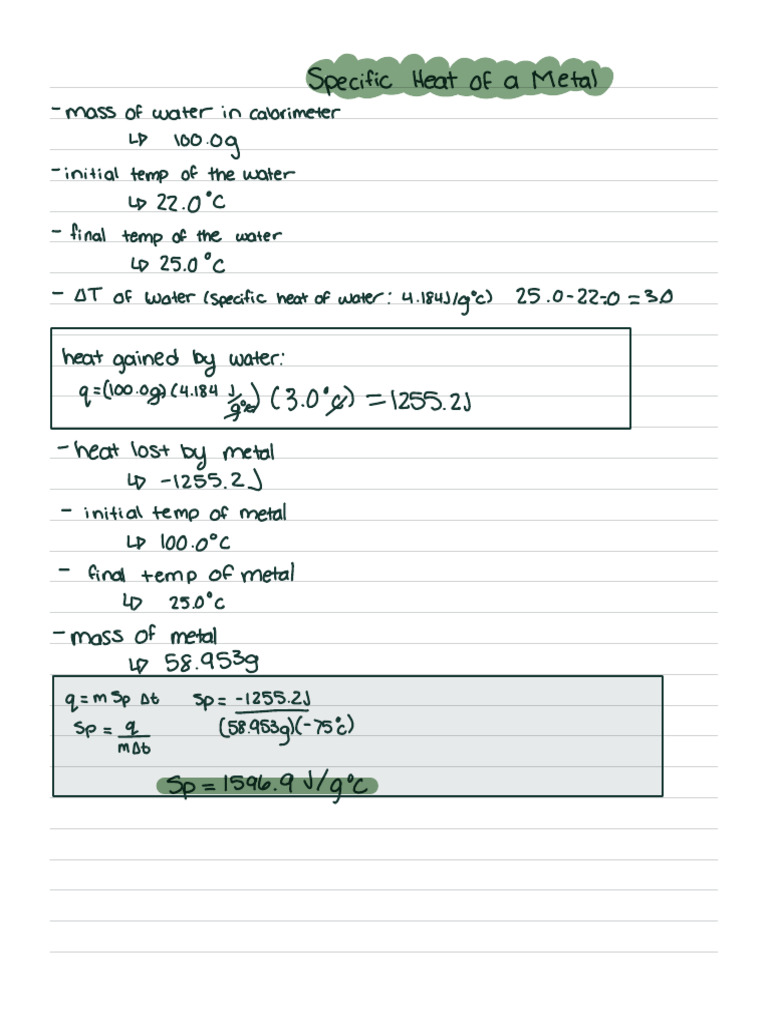 Specific Heat of a Metal
- mass of water in calorimeter
↳ 100.0g
- initial temp of the water
↳ 22.0°C
- final temp of the water
↳ 25.0°C
- ΔT of water (specific heat of water: 4.184J/g°C) 25.0-22.0 = 3.0
heat gained by water:
q=(100.0g)(4.184 J/g°C)(3.0°C) = 1255.2J
- heat lost by metal
↳ -1255.2J
- initial temp of metal
↳ 100.0°C
- final temp of metal
↳ 25.0°C
- mass of metal
↳ 58.953g
q = m Sp Δt Sp = -1255.2J / (58.953g)(-75°C)
Sp = q / mΔt
Sp = 1596.9 J/g°C